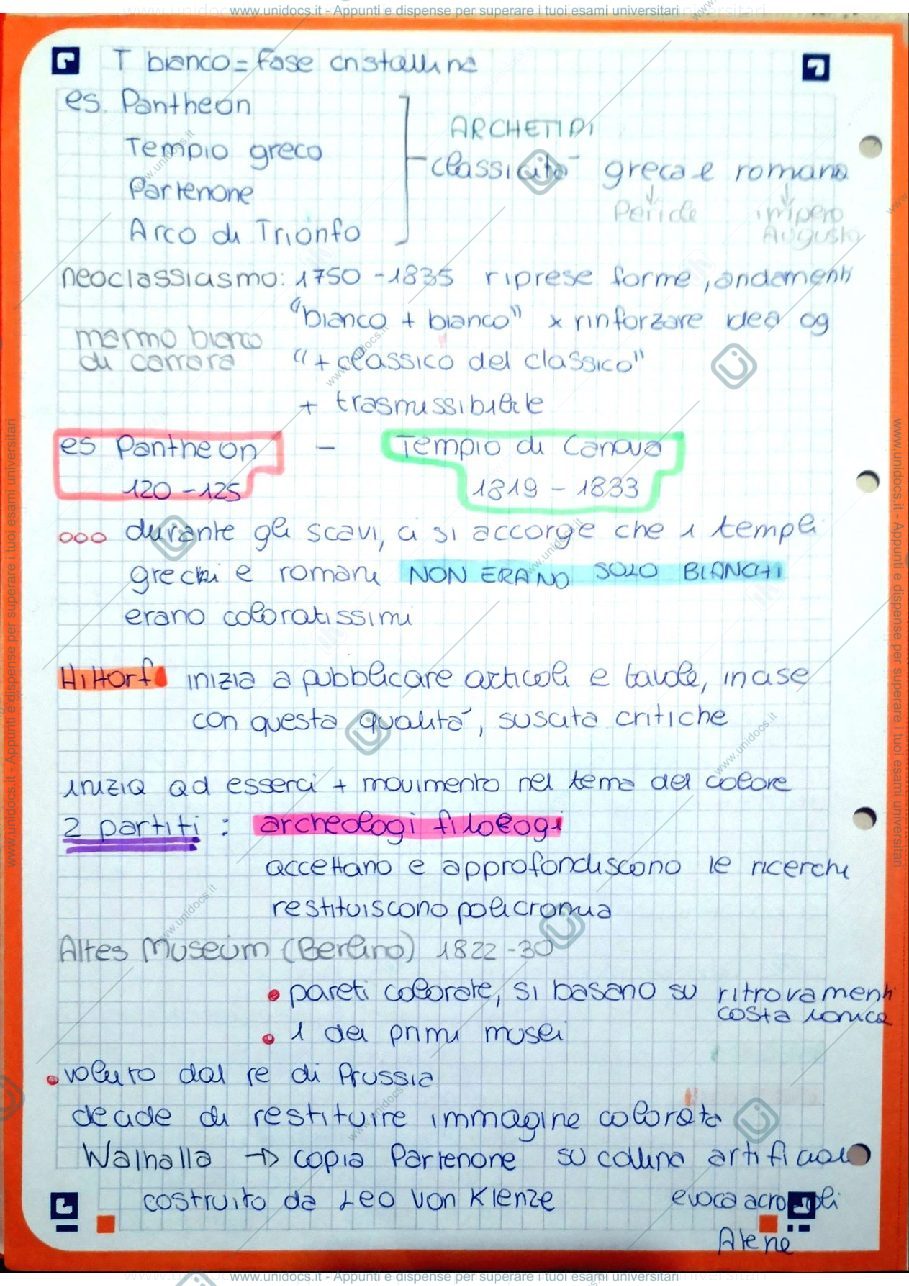 www.unidocs.it - Appunti e dispense per superare i tuoi esami universitari
T bianco = fase cristallina
es. Pantheon
Tempio greco
Partenone
Arco di Trionfo
ARCHETIPI
classicità greca e romana
Pericle impero
Augusto
neoclassicismo: 1750 - 1835 riprese forme, andamenti
"bianco + bianco" x rinforzare idea og
marmo bianco
di carrara
"+ classico del classico"
+ trasmissibile
es Pantheon - Tempio di Canova
120 - 125 1819 - 1833
ooo durante gli scavi, ci si accorge che i templi
grechi e romani NON ERANO SOLO BIANCHI
erano coloratissimi
Hittorf inizia a pubblicare articoli e tavole, in base
con questa qualità, suscita critiche
inizia ad esserci + movimento nel tema del colore
2 partiti : archeologi filologi
accettano e approfondiscono le ricerche
restituiscono policromia
Altes Museum (Berlino) 1822 - 30
• pareti colorate, si basano su ritrovamenti
costa ionica
• 1 dei primi musei
• voluto dal re di Prussia
decide di restituire immagine colorata
Walhalla → copia Partenone su collina artificiale
costruito da Leo von Klenze evoca acropoli
Atene
www.unidocs.it - Appunti e dispense per superare i tuoi esami universitari